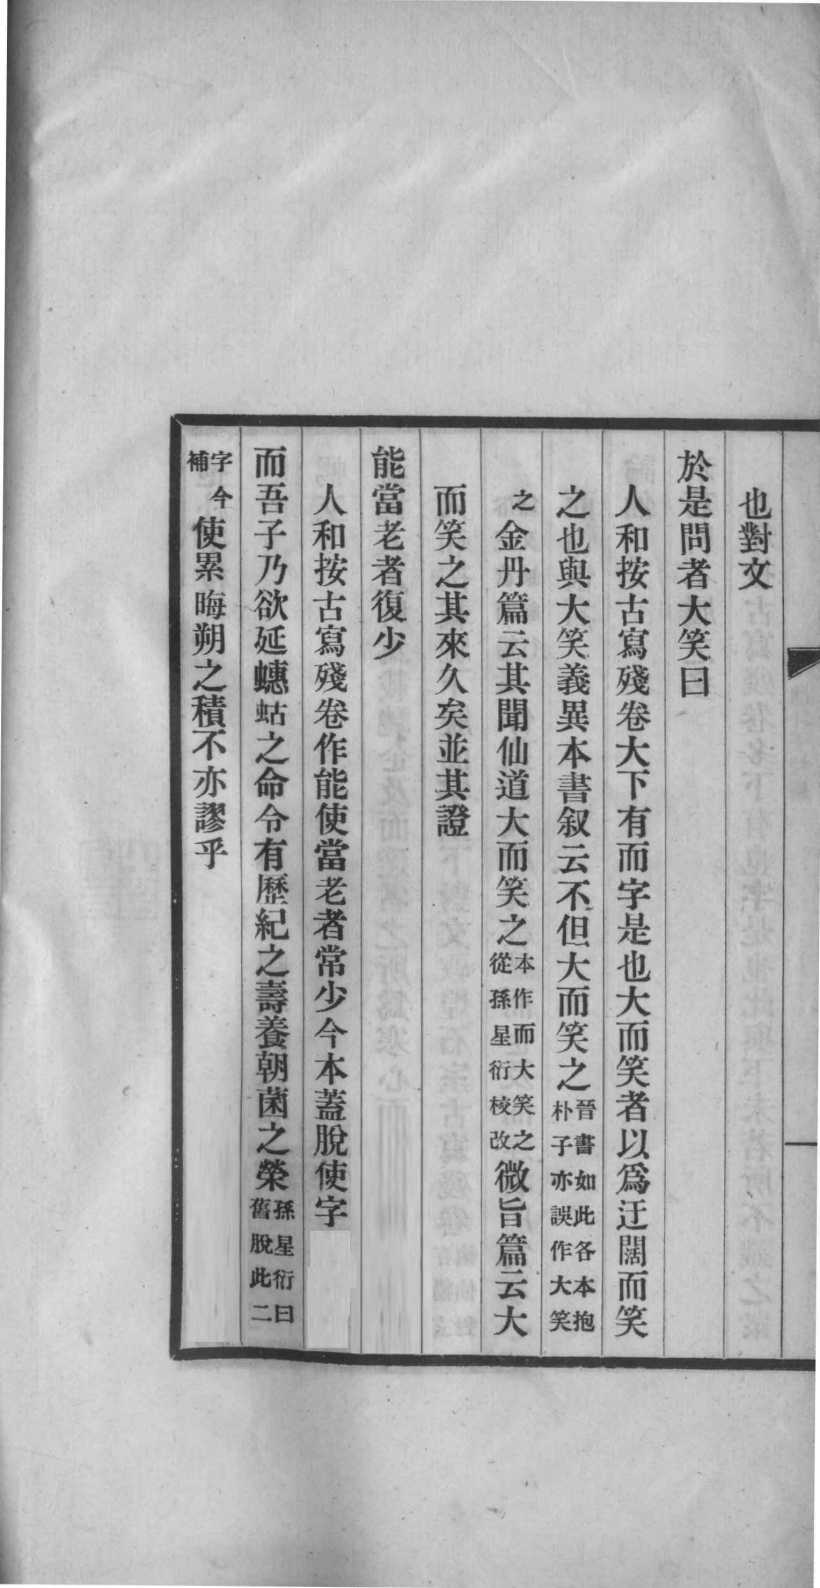 也對文
於是問者大笑曰
人和按古寫殘卷大下有而字是也大而笑者以爲迂闊而笑
之也與大笑義異本書叙云不但大而笑之晉書如此各本抱朴子亦誤作大笑
之金丹篇云其聞仙道大而笑之本作而大笑之從孫星衍校改微旨篇云大
而笑之其來久矣並其證
能當老者復少
人和按古寫殘卷作能使當老者常少今本蓋脫使字
而吾子乃欲延蟪蛄之命令有歷紀之壽養朝菌之榮孫星衍曰舊脫此二
字今補使累晦朔之積不亦謬乎